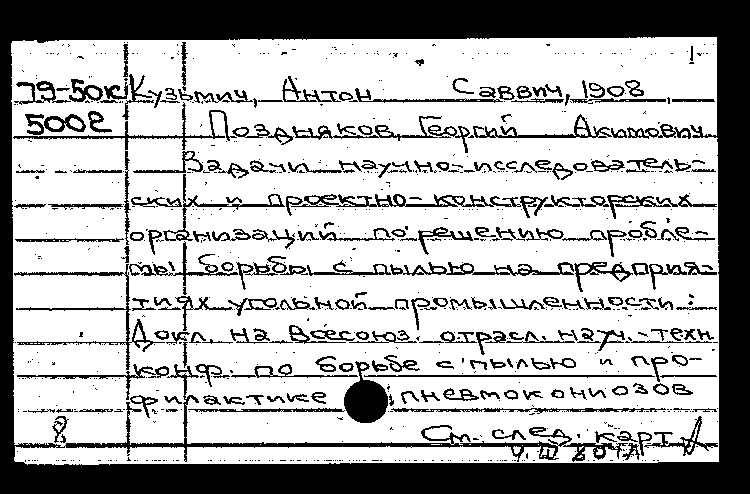 1
79-50к Кузьмич, Антон Саввич, 1908
5002 Поздняков, Георгий Акимович.
Задачи научно-исследователь-
ских и проектно-конструкторских
организаций по решению пробле-
мы борьбы с пылью на предприя-
тиях угольной промышленности:
Докл. на Всесоюз. отрасл. науч.-техн
конф. по борьбе с пылью и про-
филактике пневмокониозов
8 См. след. карт